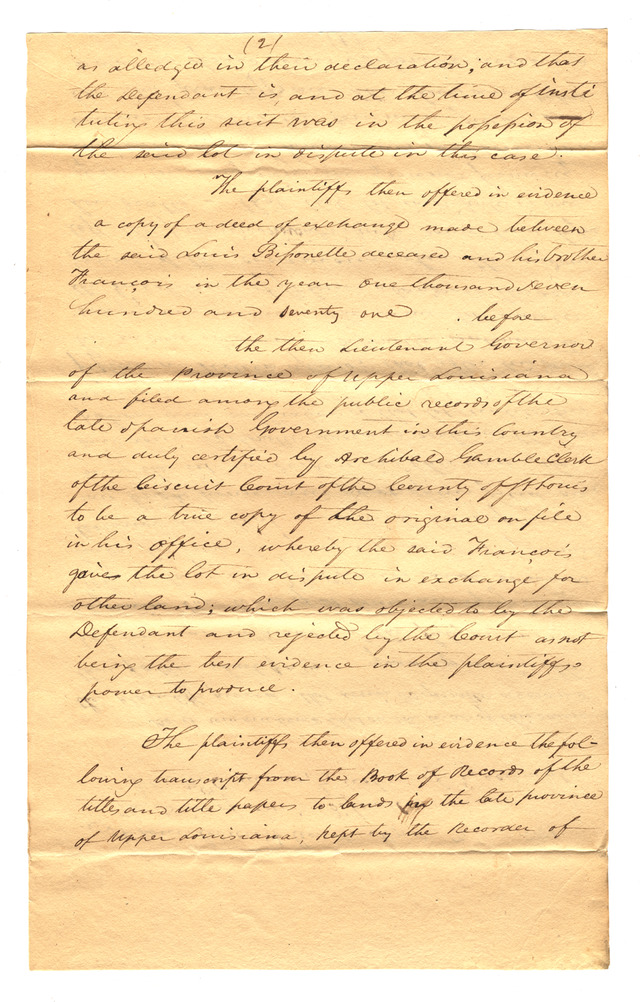 (2)
as alledged in their declaration; and that
the Defendant is, and at the time of insti
tuting this suit was in the possession of
the said lot in dispute in this case.
The plaintiffs then offered in evidence
a copy of a deed of exchange made between
the said Louis Bissonette deceased and his brother
François in the year one thousand seven
hundred and seventy one . before
the then Lieutenant Governor
of the Province of Upper Louisiana
and filed among the public records of the
late Spanish Government in this Country
and duly certified by Archibald Gamble Clerk
of the Circuit Court of the County of St Louis
to be a true copy of the original on file
in his office, whereby the said François
gives the lot in dispute in exchange for
other land; which was objected to by the
Defendant and rejected by the Court as not
being the best evidence in the plaintiffs
power to produce.
The plaintiffs then offered in evidence the fol-
lowing transcript from the Book of Records of the
titles and title papers to lands in the late province
of Upper Louisiana, kept by the Recorder of